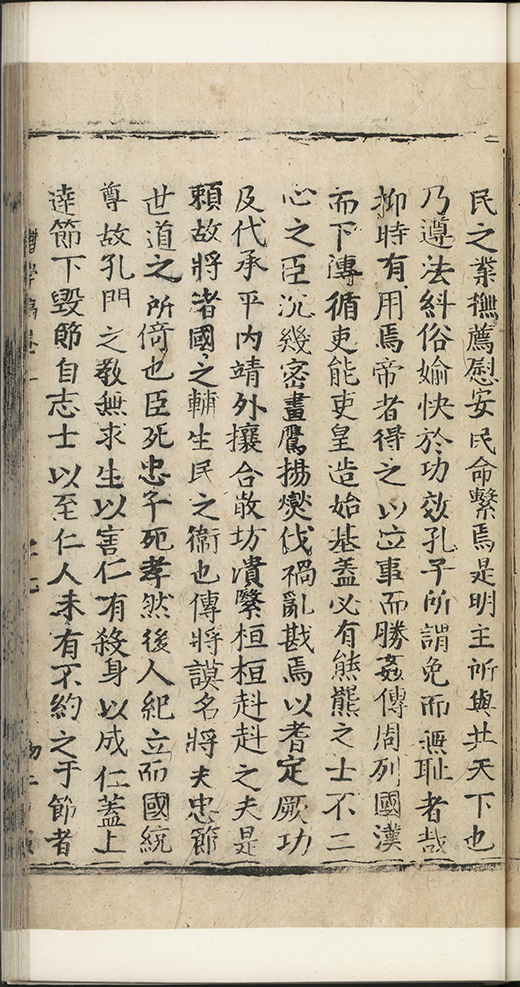 民之業撫薦慰安民命繫焉是明主所與共天下也
乃遵法糾俗媮快於功效孔子所謂免而無恥者哉
抑時有用焉帝者得之以立事而勝姦傳周列國漢
而下傳循吏能吏皇造始基蓋必有熊羆之士不二
心之臣沉幾密畫鷹揚爕伐禍亂戡焉以耆定厥功
及代承平內靖外攘合散坊潰繄桓桓赳赳之夫是
賴故將者國之輔生民之衛也傳將謨名將夫忠節
世道之所倚也臣死忠子死孝然後人紀立而國統
尊故孔門之教無求生以害仁有殺身以成仁蓋上
達節下毀節自志士以至仁人未有不約之于節者